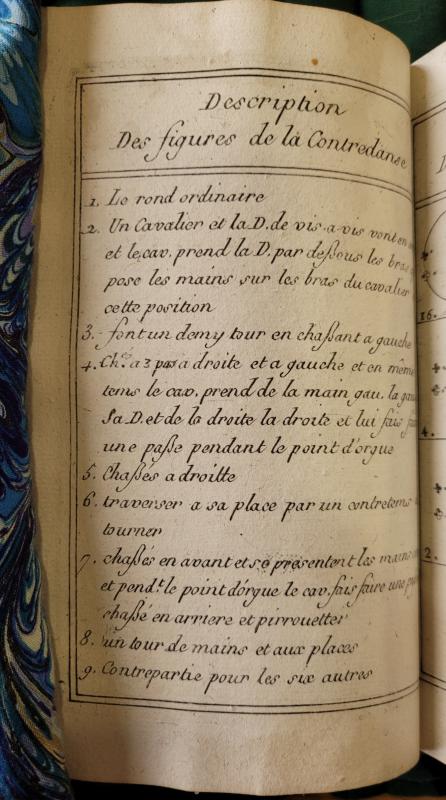 Description
Des figures de la Contredanse
1. Le rond ordinaire
2. Un Cavalier et la D. de vis-a-vis vont en
et le cav. prend la D. par deſsous les bras
pose les mains sur les bras du cavalier
cette position
3. font un demy tour en chaſsant a gauche
4. Ch.ˢ a 3 pas a droite et a gauche et en même
tems le cav. prend de la main gau. la
Sa D. et de la droite la droite et lui fais
une paſse pendant le point d'orgue
5. Chaſsés a droitte
6. traverser a sa place par un contretems
tourner
7. chaſsés en avant et se présentent les mains
et pend.t le point d'orgue le cav. fais faire une
chaſsé en arriere et pirrouetter
8. un tour de mains et aux places
9. Contrepartie pour les six autres
16.
4.
2.